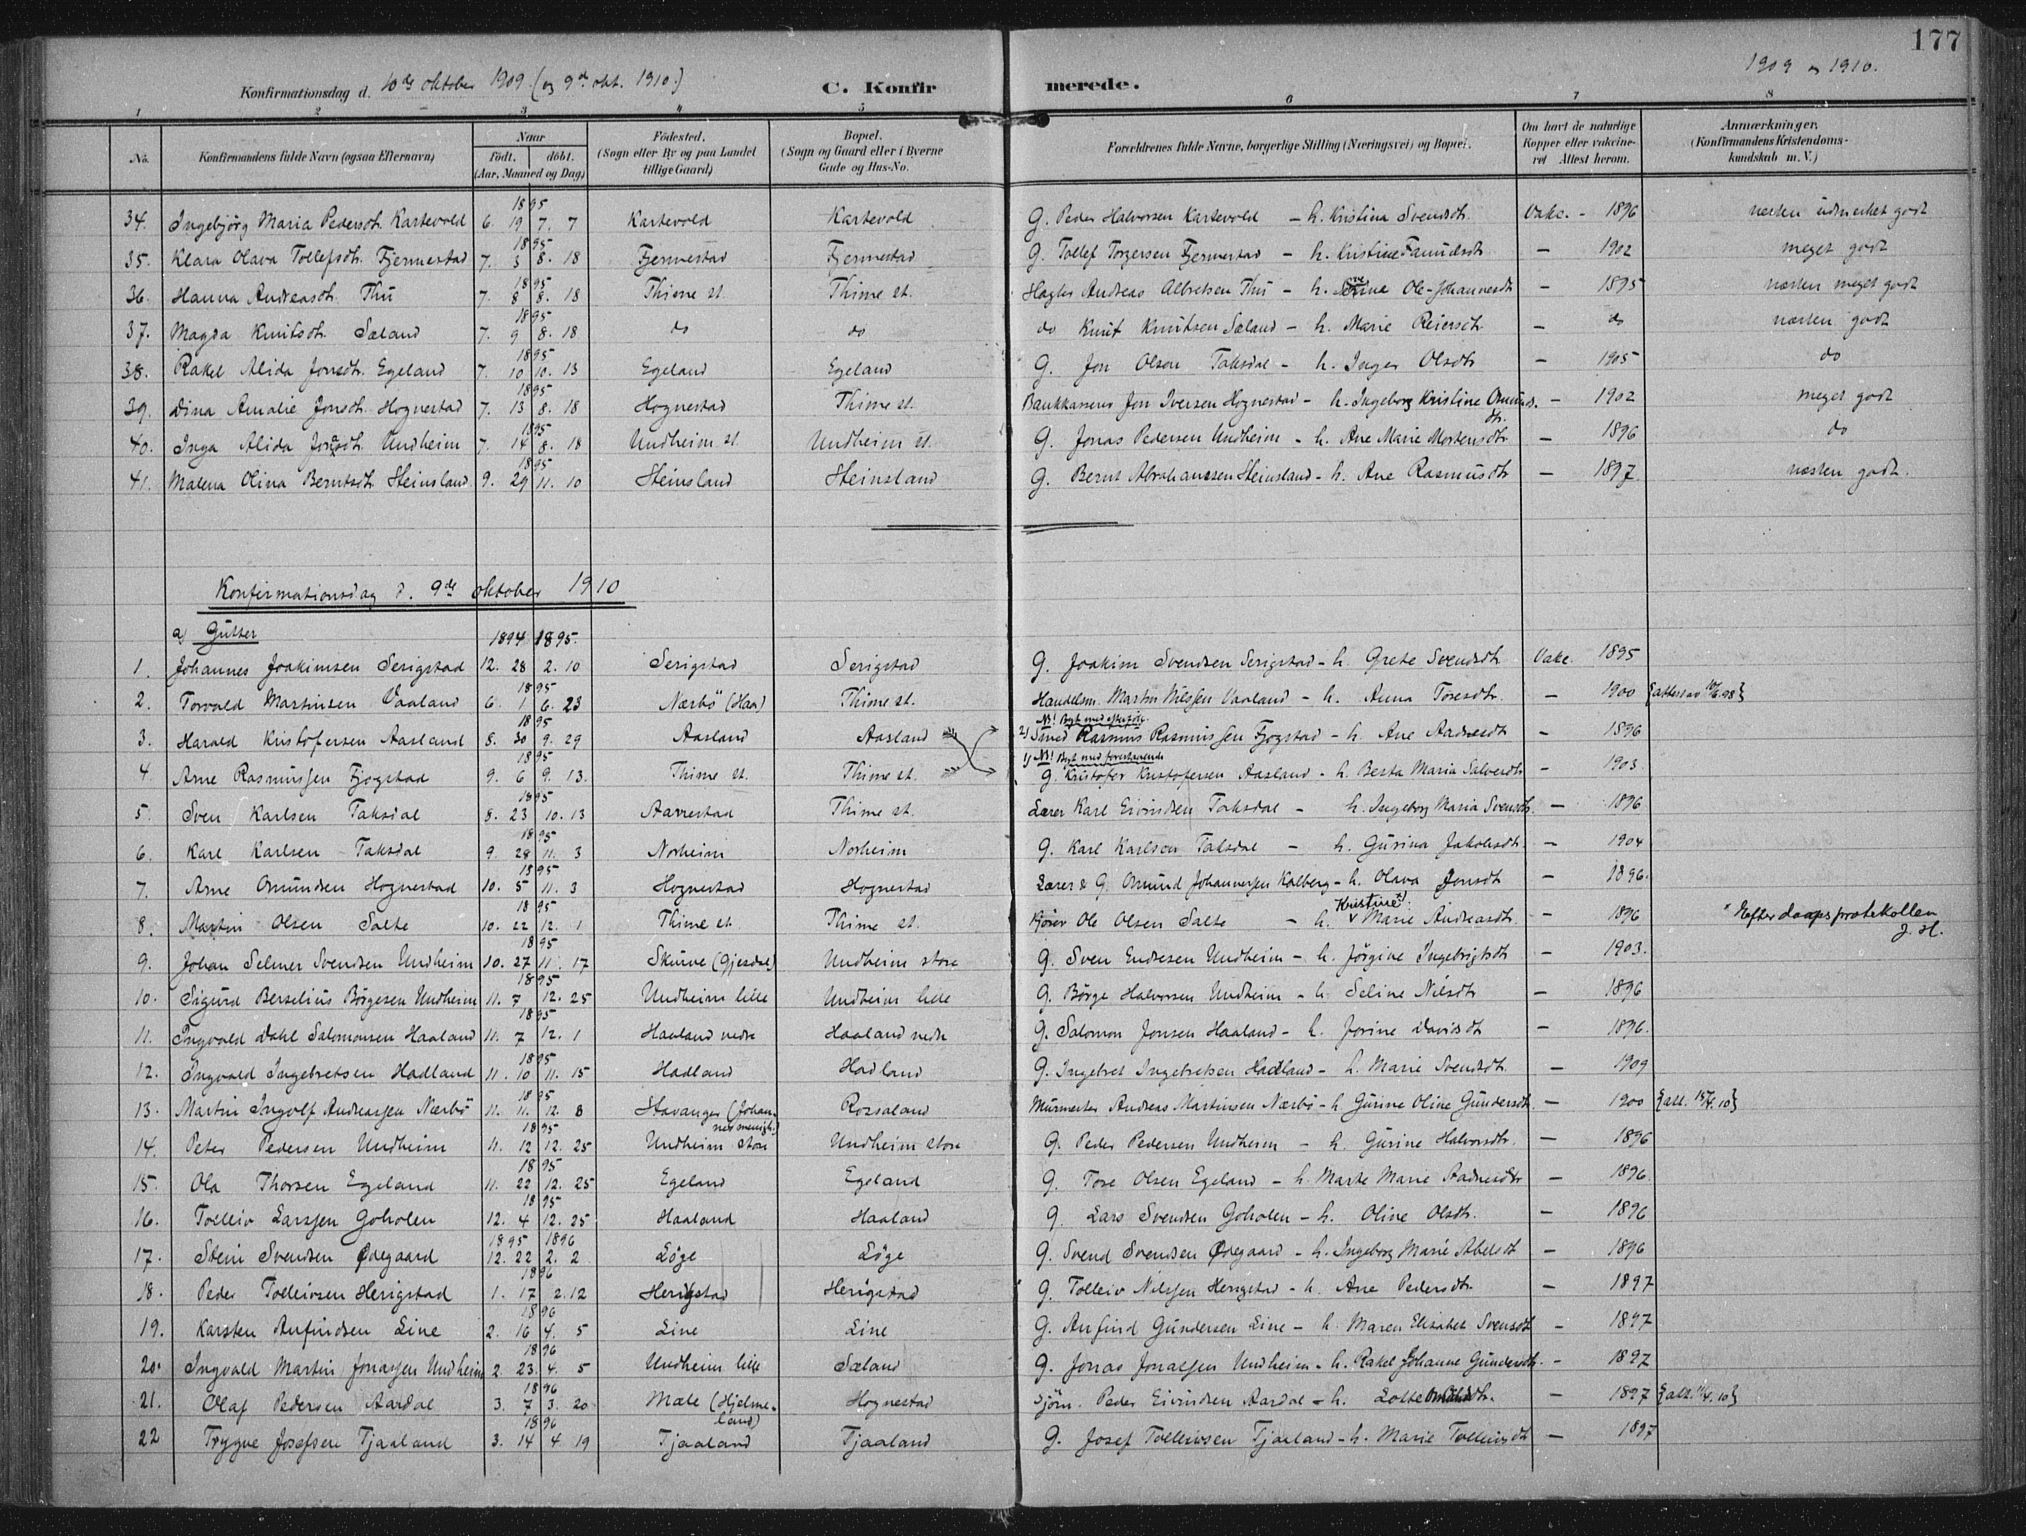 177
1909 og 1910.
Konfirmationsdag d. 10de oktober 1909 (og 9de okt. 1910.)
C. Konfirmerede.
1 2 3 4 5 6 7 8
No. Konfirmandens fulde Navn (ogsaa Efternavn) Naar födt. döbt. (Aar, Maaned og Dag) Födested. (Sogn eller By og paa Landet tillige Gaard) Bopæl. (Sogn og Gaard eller i Byerne Gade og Hus-No. Forældrenes fulde Navne, borgerlige Stilling (Næringsvei) og Bopæl. Om havt de naturlige Kopper eller vakcineret Attest herom. Anmærkninger. (Konfirmandens Kristendomskundskab m. V.)
34. Ingebjörg Maria Pedersdt. Kartevold 6. 19 1895 7. 7 Kartevold Kartevold G. Peder Halvorsen Kartevold - h. Kristina Svendsdt. Vakc. - 1896 næsten udmerket godt
35. Klara Olava Tollefsdt. Fjermestad 7. 3 1895 8. 18 Fjermestad Fjermestad G. Tollef Torgersen Fjermestad - h. Kristine - 1902 meget godt
36. Hanna Andreasdt. Thu 7. 8 1895 8. 18 Thime st. Thime st. Andreas Albretsen Thu - h. Ole-Johannesdt - 1895 næsten meget godt
37. Magda Knutsdt. Sæland 7. 9 1895 8. 18 do do do Knut Knutsen Sæland - h. Marie Reiersdt. - do næsten godt
38. Rakel Alida Jonsdt. Egeland 7. 10 1895 10. 13 Egeland Egeland G. Jon Olson Taksdal - h. Inger Olsdt - 1905 do
39. Dina Amalie Jonsdt. Hognestad 7. 13 1895 8. 18 Hognestad Thime st. Bankkasserer Jon Iversen Hognestad - h. Ingeborg Kristine Omunds-dt. - 1902 meget godt
40. Inga Alida Jonasdt. Undheim 7. 14 1895 8. 18 Undheim st. Undheim st. G. Jonas Pedersen Undheim - h. Ane Marie Mortensdt. - 1896 do
41. Malena Olina Berntsdt. Heinsland 9. 29 1895 11. 10 Heinsland Heinsland G. Bernt Abrahamsen Heinsland - h. Ane Rasmusdt - 1897 næsten godt.
Konfirmationsdag d. 9de oktober 1910
a) Gutter 1894 1895.
1. Johannes Joakimsen Serigstad 12. 28 2. 10 Serigstad Serigstad G. Joakim Svendsen Serigstad - h. Grete Svendsdt. Vakc. 1895
2. Torvald Martinsen Vaaland 6. 1 1895 6. 23 Nærbö (Haa) Thime st. Handelsm. Martin Nilssen Vaaland - h. Anna Toresdt. - 1900
3. Harald Kristofersen Aasland 8. 30 1895 9. 29 Aasland Aasland 2) NB! Byt med efterfölg. Smed Rasmus Rasmussen Fjogstad - h. Ane Aadnesdt - 1896
4. Arne Rasmussen Fjogstad 9. 6 1895 9. 13. Thime st. Thime st. 1) NB! Byt med forestaaende G. Kristofer Kristofersen Aasland - h. Berta Maria Salvesdt - 1903
5. Sven Karlsen Taksdal 8. 23 1895 10. 13 Aavrestad Thime st. Lærer Karl Eivindsen Taksdal - h. Ingeborg Maria Svensdt. - 1896
6. Karl Karlsen Taksdal 9. 28 1895 11. 3 Norheim Norheim G. Karl Karlsen Taksdal - h. Gurina Jakobsdt. - 1904
7. Arne Omundsen Hognestad 10. 5 1895 11. 3 Hognestad Hognestad Lærer & G. Omund Johannessen Kalberg - h. Olava Jonsdt - 1896.
8. Martin Olsen Salte 10. 22 1895 12. 1 Thime st. Thime st. Kjörer Ole Olsen Salte - h. Kristine Marie Andreasdt. - 1896 Efter daapsprotokollen J. H.
9. Johan Selmer Svendsen Undheim 10. 27 1895 11. 17 Skurve (Gjesdal) Undheim store G. Sven Endresen Undheim - h. Jörgine Ingebrigtsdt - 1903.
10. Sigurd Berselius Börgesen Undheim 11. 7 1895 12. 25 Undheim lille Undheim lille G. Börge Halvorsen Undheim - h. Seline Nilsdt - 1896
11. Ingvald Dahl Salomonsen Haaland 11. 7 1895 12. 1 Haaland nedre Haaland nedre G. Salomon Jonsen Haaland - h. Jorine Davidsdt - 1896.
12. Ingvald Ingebretsen Hadland 11. 10 1895 11. 15 Hadland Hadland G. Ingebret Ingebretsen Hadland - h. Marie Svendsdt. - 1909
13. Martin Ingolf Andreassen Nærbö 11. 11. 1895 12. 8 Stavanger (Johannes menigh.) Rossaland Murmester Andreas Martinsen Nærbö - h. Gurine Oline Gundersdt. - 1900
14. Peter Pedersen Undheim 11. 12 1895 12. 25 Undheim store Undheim store G. Peder Pedersen Undheim - h. Gurine Halvorsdt. - 1896
15. Ola Thorsen Egeland 11. 22 1895 12. 25 Egeland Egeland G. Tore Olsen Egeland - h. Marte Marie Aadnesdt - 1896
16. Tolleiv Larssen Goholen 12. 4 1895 12. 25 Haaland Haaland G. Lars Svendsen Goholen - h. Oline Olsdt. - 1896
17. Stein Svendsen Öregaard 1895 12. 22 1896 2. 2 Löge Löge G. Svend Svendsen Öregaard - h. Ingeborg Marie Abelsdt - 1896
18. Peder Tolleivsen Herigstad 1. 17 1896 2. 12 Herigstad Herigstad G. Tolleiv Nilssen Herigstad - h. Ane Pedersdt. - 1897
19. Karsten Anfindsen Line 2. 16 1896 4. 5 Line Line G. Anfind Gundersen Line - h. Maren Elisabet Svensdt - 1897
20. Ingvald Martin Jonassen Undheim 2. 23. 1896 4. 5 Undheim lille Sæland G. Jonas Jonassen Undheim - h. Rakel Johanne Gundersdt. - 1897
21. Olaf Pedersen Aardal 3. 7 1896 3. 20 Mæle (Hjelmeland) Hognestad Peder Eivindsen Aardal - h. Lotte - 1897
22 Trygve Josefsen Tjaaland 3. 14 1896 4 19 Tjaaland Tjaaland G. Josef Tolleivsen Tjaaland - h. Marie Tolleivsdt - 1897